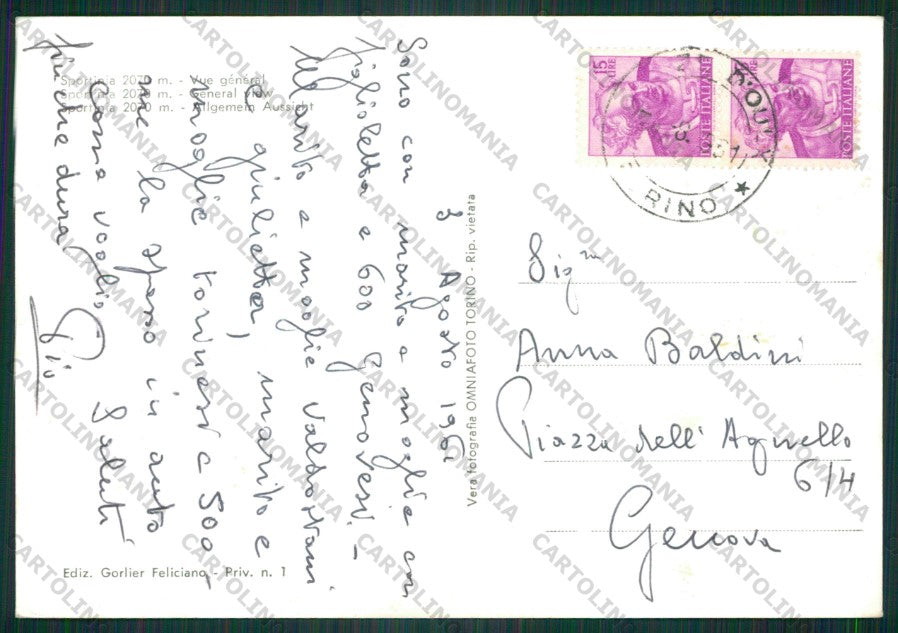 Sportinia 2070 m. - Vue général
Sportinia 2070 m. - General view
Sportinia 2070 m. - Allgemein Aussicht
3 Agosto 1961
Sono con marito e moglie con
figlioletta e 600 genovesi -
Marito e moglie Valdostani
e giulietta, marito e
moglie torinesi e 500
me la spasso in auto
Cosa voglio Saluti
finché dura
Giò
Ediz. Gorlier Feliciano - Priv. n. 1
Vera fotografia OMNIAFOTO TORINO - Rip. vietata
15 LIRE
POSTE ITALIANE
POSTE ITALIANE
RINO
Sig.na
Anna Baldini
Piazza dell' Agnello
6/4
Genova
CARTOLINOMANIA